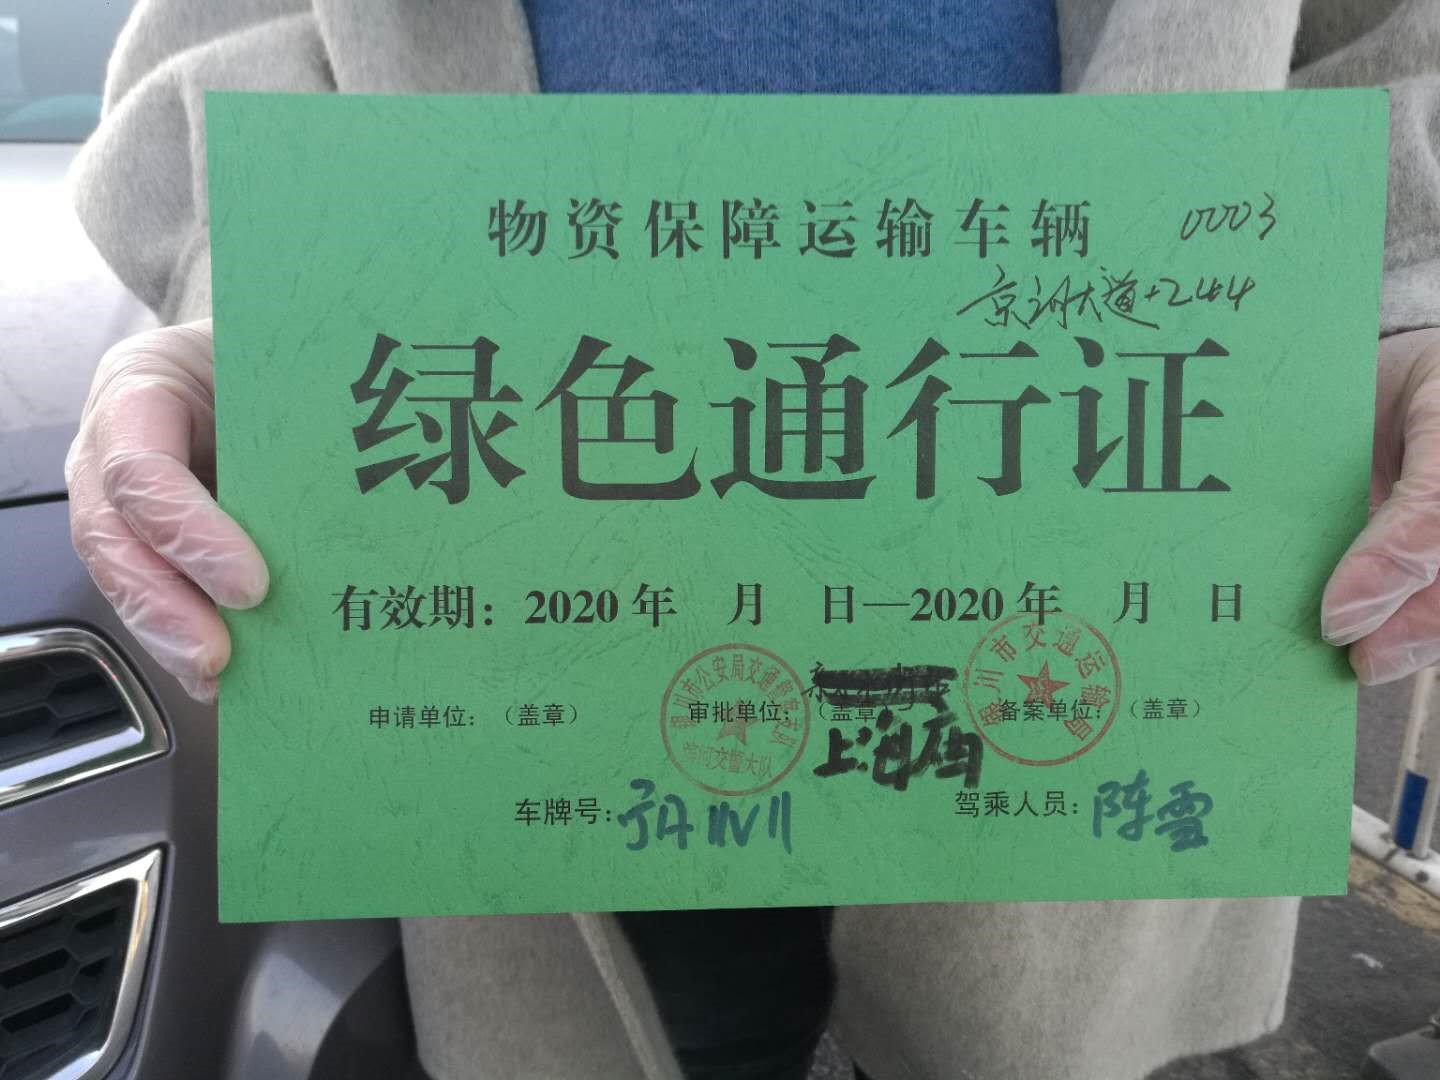 物资保障运输车辆 0003
京河大道+244
绿色通行证
有效期：2020年 月 日—2020年 月 日
银川市公安局交通警察支队
滨河交警大队
银川市交通运输局
申请单位：（盖章） 审批单位：（盖章） 备案单位：（盖章）
上海庙
车牌号： 驾乘人员：陈雪